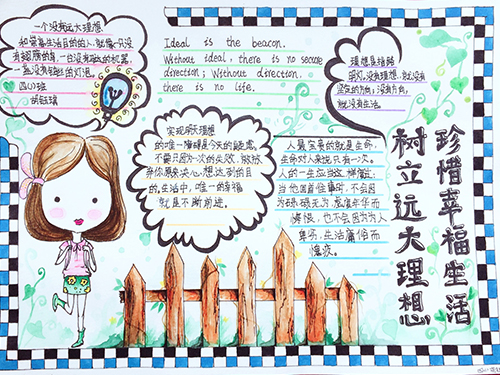 一个没有远大理想
和崇高生活目的的人,就像一只没
有翅膀的鸟,一台没有动力的机器,
一盏没有钨丝的灯泡。
四(1)班
Ideal is the beacon.
Without ideal, there is no secure
direction; Without direction,
there is no life.
理想是指路
明灯。没有理想,就没有
坚定的方向;没有方向,
就没有生活。
实现明天理想
的唯一障碍是今天的疑虑。
不要只因为一次的失败,就放
弃你原来决心想达到的目
的。生活中,唯一的幸福
就是不断前进。
人最宝贵的就是生命,
生命对人来说只有一次。
人的一生应当这样度过:
当他回首往事时,不会因
为碌碌无为,虚度年华而
悔恨,也不会因为为人
卑劣,生活庸俗而
愧疚。
珍惜幸福生活
树立远大理想